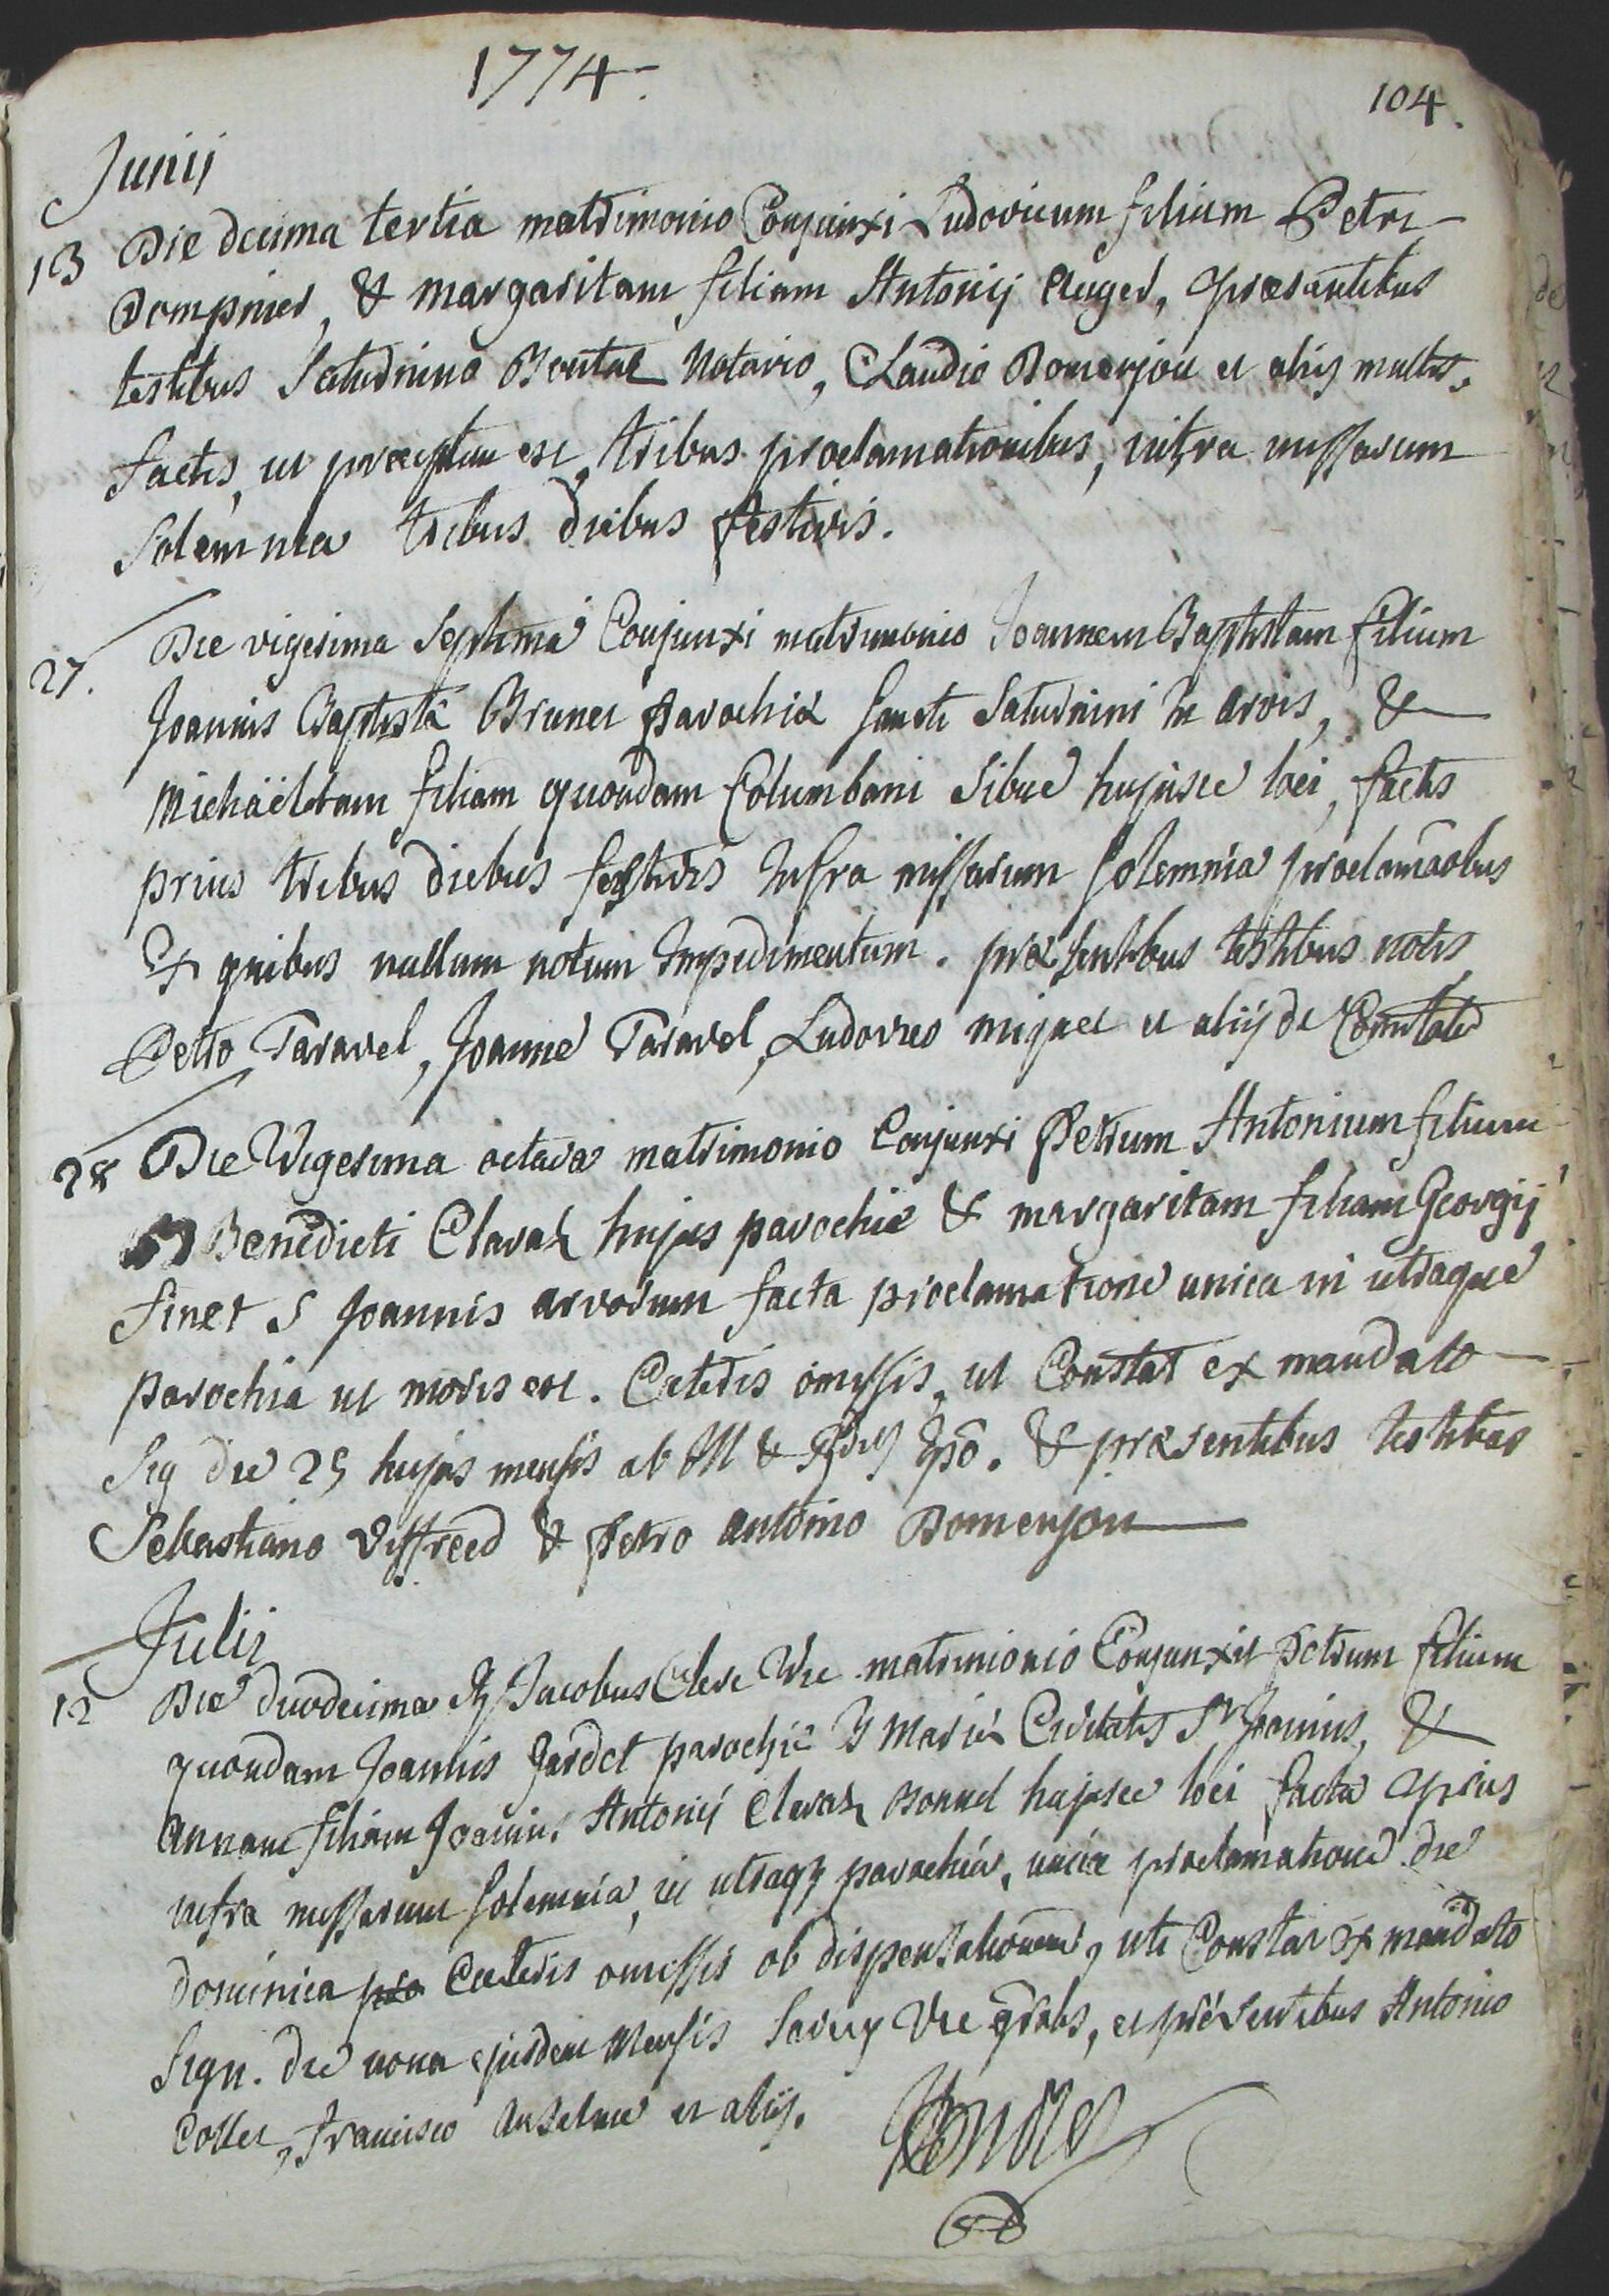 1774.
104.
Junij
13 Die decima tertia matrimonio Conjunxi Ludovicum filium Petri
Dompnier, & margaritam filiam Antonij Auger, præsentibus
testibus Saturnino Boutal Notario, Claudio Domenjou et alijs multis,
factis, ut præceptum est, tribus proclamationibus, intra missarum
Solemnia tribus diebus festivis.
27. Die vigesima septima Conjunxi matrimonio Joannem Baptistam filium
Joannis Baptistæ Brunet parochiæ Sancti Saturnini in arvis, &
Michaëletam filiam quondam Columbani Sibue hujusce loci, factis
prius tribus diebus festivis Infra missarum solemnia proclamaõbus
Ex quibus nullum notum Impedimentum. præsentibus testibus notis
Petro Taravel, Joanne Taravel, Ludovico miquet et alijs de Comitatu
28 Die Vigesima octava matrimonio Conjunxi Petrum Antonium filium
Benedicti Claraz hujus parochiæ & margaritam filiam Georgij
finet S Joannis arvorum facta proclamatione unica in utraque
parochia ut moris est. Cæteris omissis, ut Constat ex mandato
Sig die 25 hujus mensis ab Ill & Rdis Epõ. & præsentibus testibus
Sebastiano Viffred & petro antonio Domenjou
Julij
12 Die duodecima Rd Jacobus Clert Vic matrimonio Conjunxit petrum filium
quondam Joannis Jardet parochiæ B Mariæ Civitatis Sti Joannis, &
Annam filiam Joannis Antonij Claraz Bonnel hujusce loci facta prius
infra missarum solemnia, in utraqz parochia, unica proclamatione die
dominica pro Cæteris omissis ob dispensationem, uti Constat ex mandato
Sign. die nona ejusdem Mensis Savey Vic gralis, et præsentibus Antonio
Collet, Francisco Anselme et alijs.